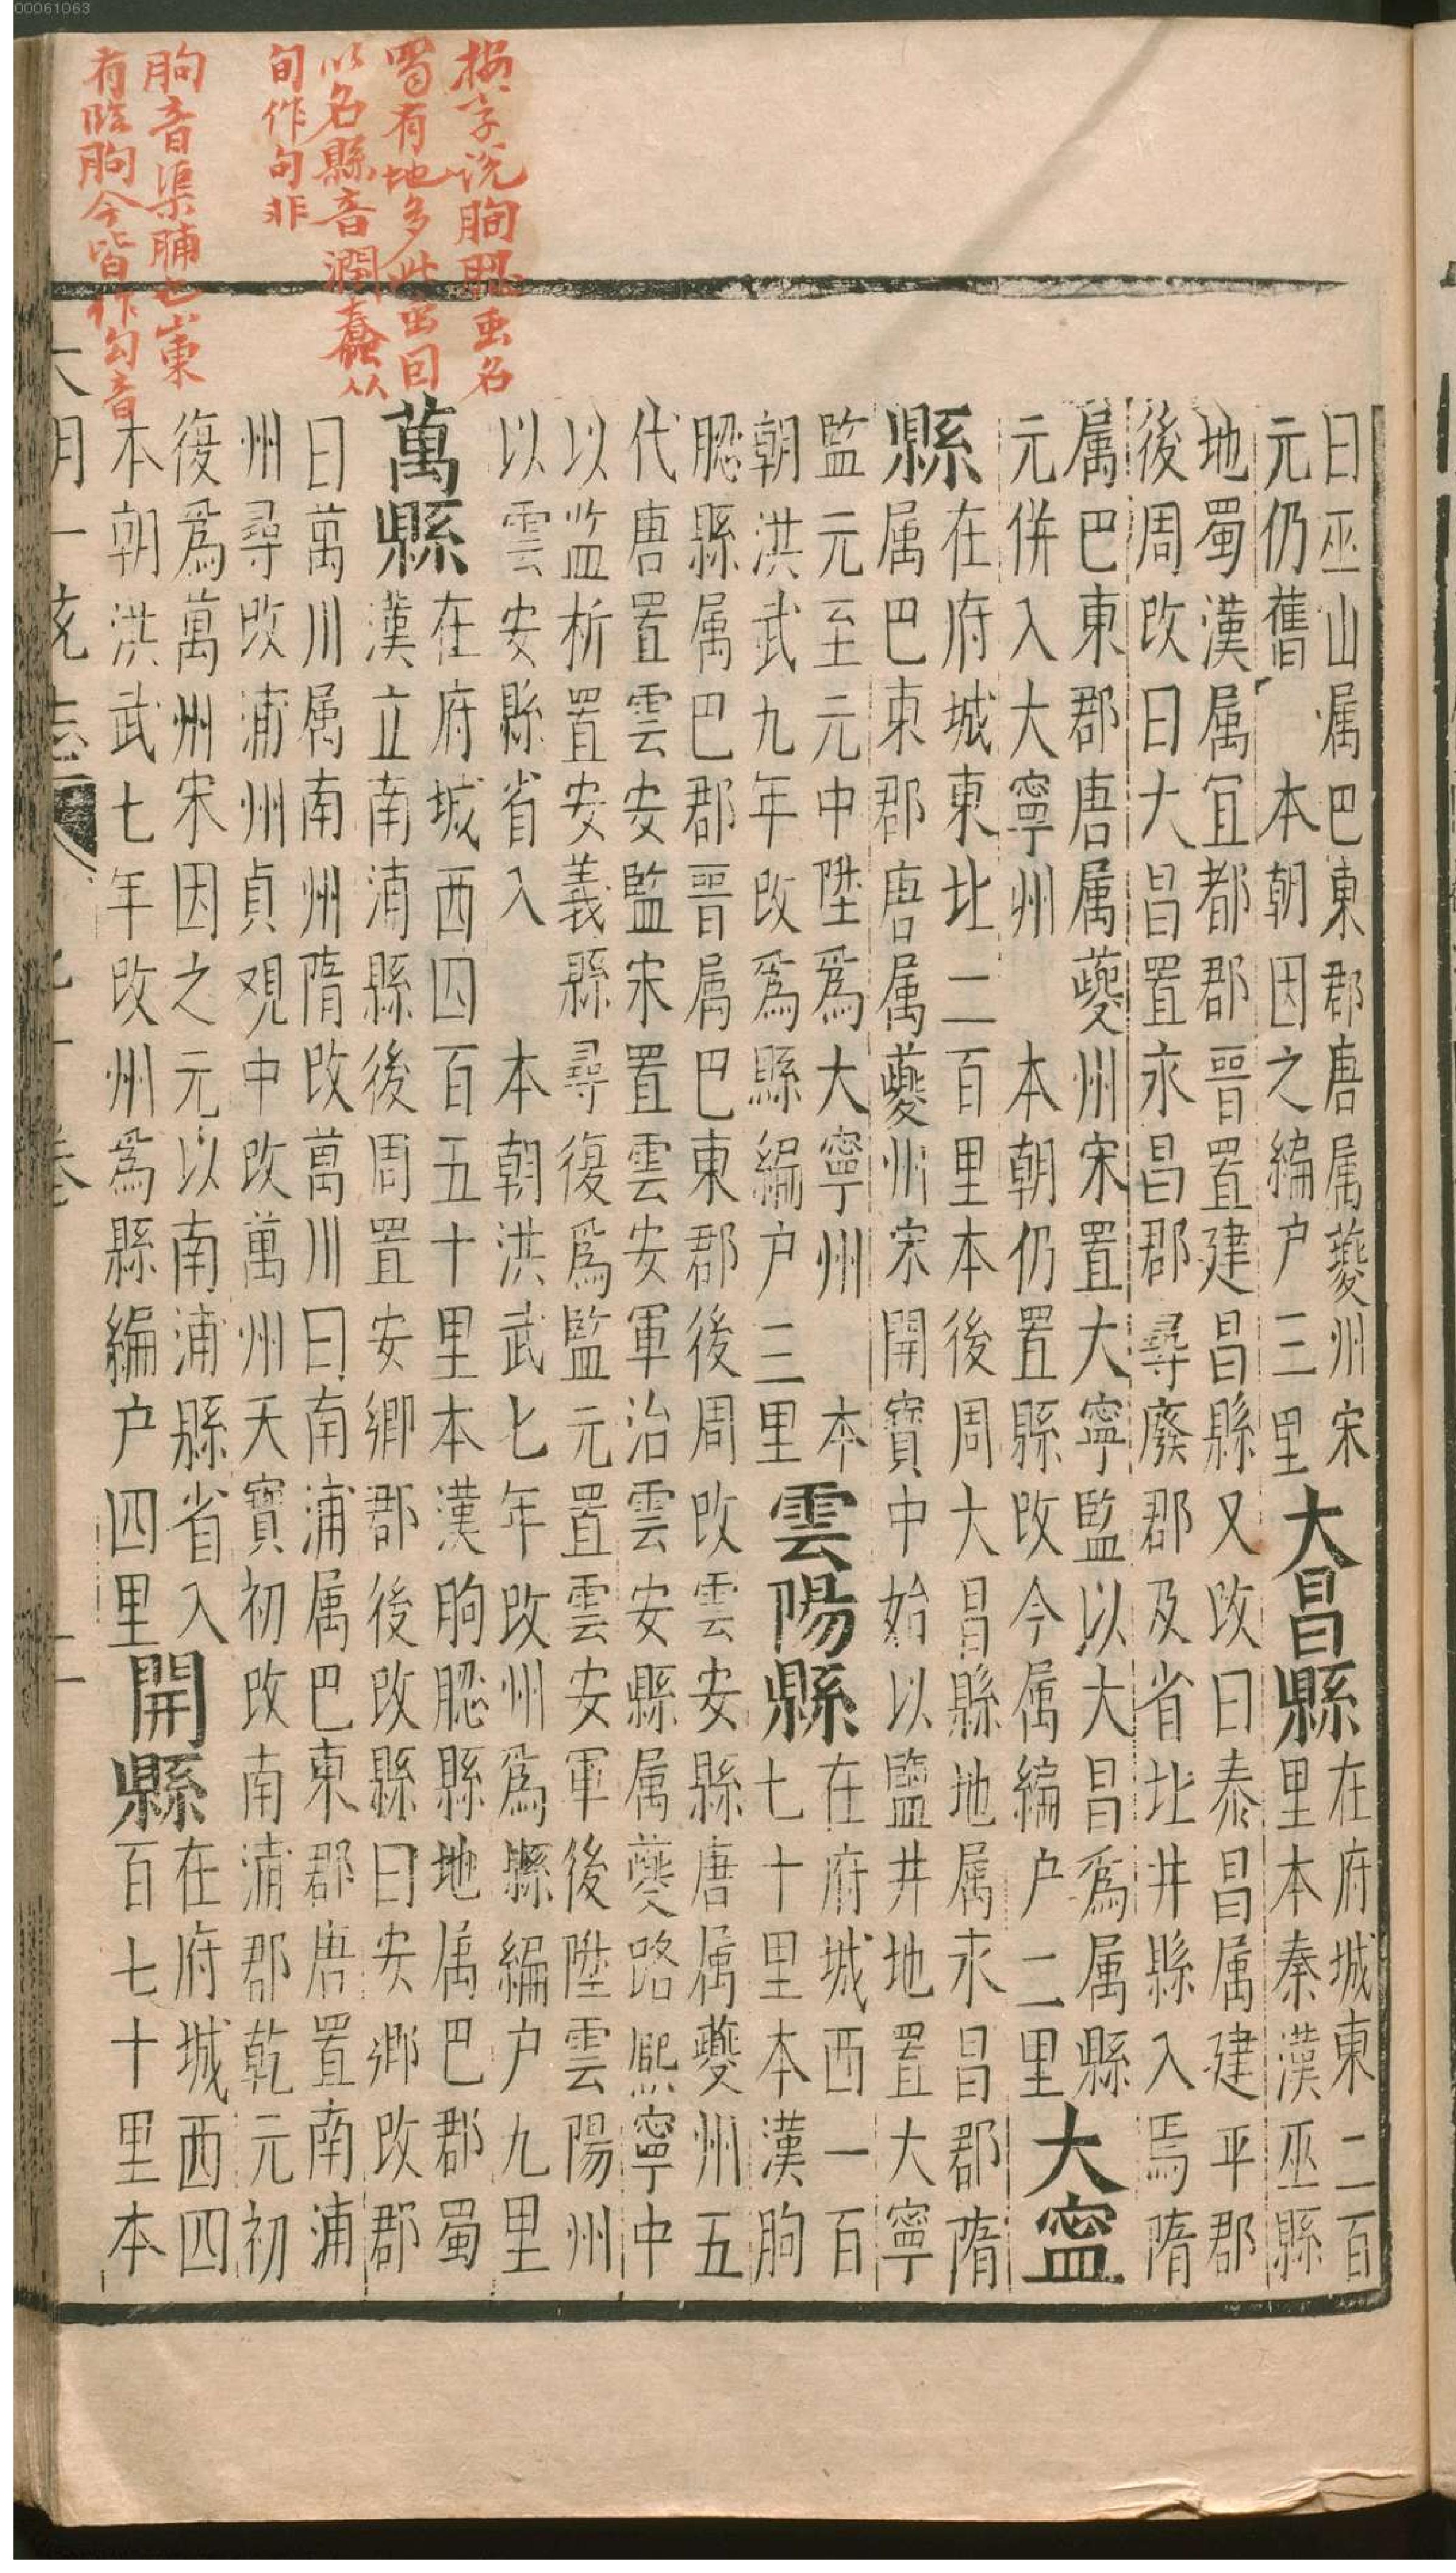 00061063
按字说朐䏰虫名
蜀有地多此虫因
以名縣音潤蠢从
旬作句非
朐音渠脯也山東
有臨朐今皆作勾音
曰巫山属巴東郡唐属夔州宋
元仍舊 本朝因之編户三里
大昌縣
在府城東二百
里本秦漢巫縣
地蜀漢属宜都郡晉置建昌縣又改曰泰昌属建平郡
後周改曰大昌置永昌郡尋廢郡及省北井縣入焉隋
属巴東郡唐属夔州宋置大寧監以大昌爲属縣
元併入大寧州 本朝仍置縣改今属編户二里
大寧
縣
在府城東北二百里本後周大昌縣地属永昌郡隋
属巴東郡唐属夔州宋開寶中始以鹽井地置大寧
監元至元中陞爲大寧州 本
朝洪武九年改爲縣編户三里
雲陽縣
在府城西一百
七十里本漢朐
䏰縣属巴郡晉属巴東郡後周改雲安縣唐属夔州五
代唐置雲安監宋置雲安軍治雲安縣属夔路熈寧中
以监析置安義縣尋復爲監元置雲安軍後陞雲陽州
以雲安縣省入 本朝洪武七年改州爲縣編户九里
萬縣
在府城西四百五十里本漢朐䏰縣地属巴郡蜀
漢立南浦縣後周置安鄉郡後改縣曰安鄉改郡
曰萬川属南州隋改萬川曰南浦属巴東郡唐置南浦
州尋改浦州貞觀中改萬州天寶初改南浦郡乾元初
復爲萬州宋因之元以南浦縣省入
本朝洪武七年改州爲縣編户四里
開縣
在府城西四
百七十里本